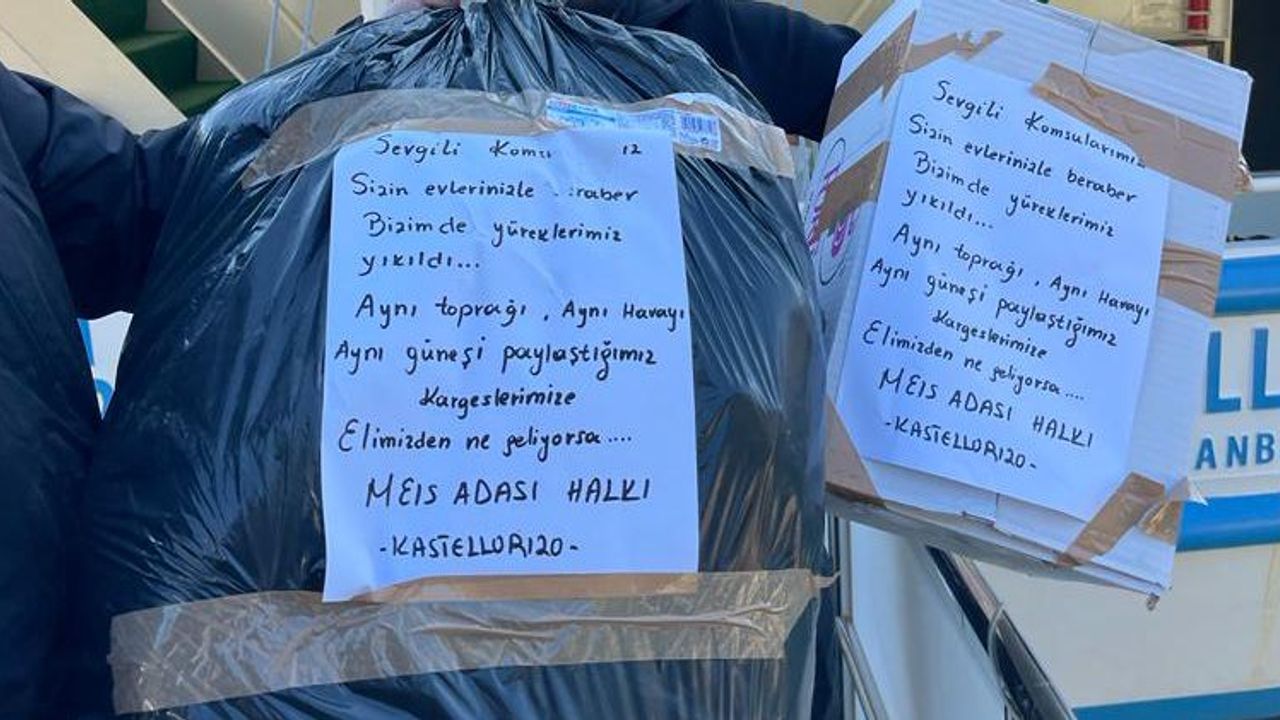 Sevgili
Sizin evlerinizle
Bizimde yüreklerimiz
yıkıldı...
Aynı toprağı, Aynı Havayı
Aynı güneşi paylaştığımız
Kargeslerimize
Elimizden ne geliyorsa....
MEIS ADASI HALKI
-KASTELLORIZO-
Sevgili Komsularımız
Sizin evlerinizle beraber
Bizimde yüreklerimiz
yıkıldı...
Aynı toprağı, Aynı Havayı
Aynı güneşi paylaştığımız
Kargeslerimize
Elimizden ne geliyorsa....
MEIS ADASI HALKI
-KASTELLORIZO-